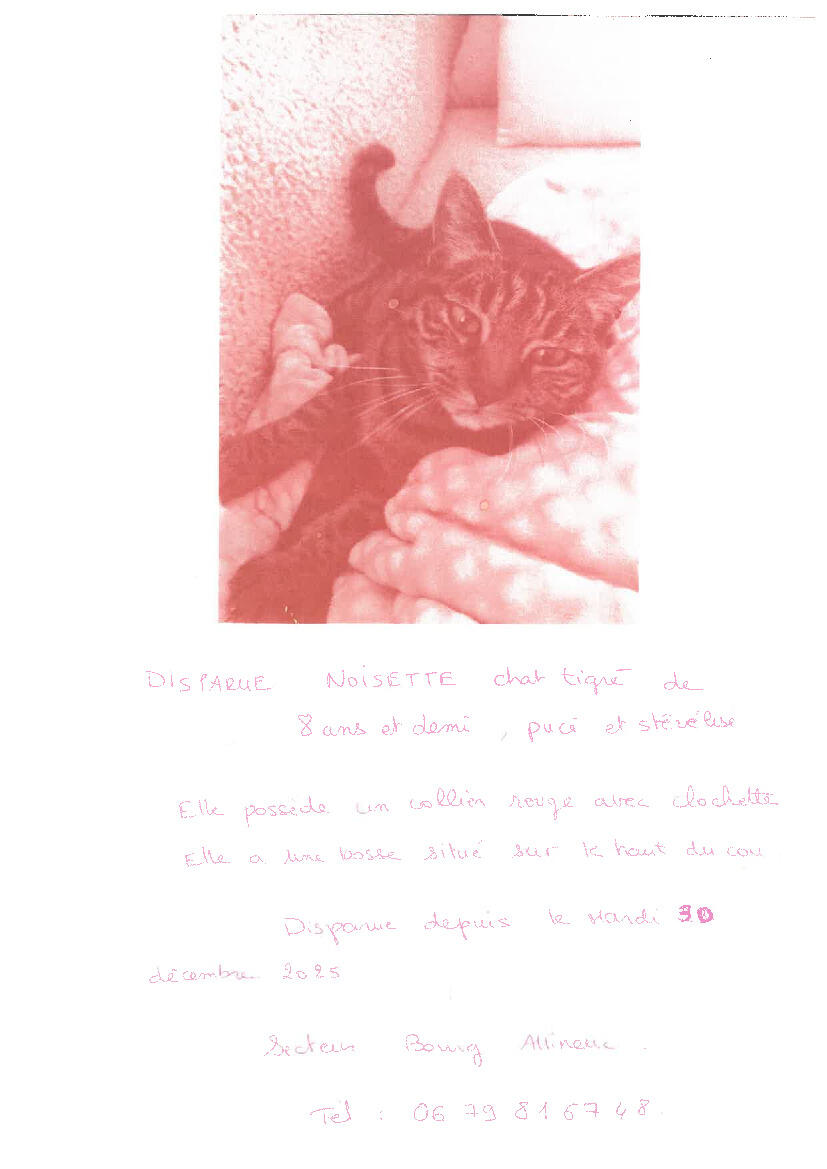 DISPARUE NOISETTE chat tigré de
8 ans et demi, pucé et stérélise
Elle possède un collier rouge avec clochette
Elle a une bosse situé sur le haut du cou
Disparue depuis le Mardi 30
décembre 2025
Secteur Bourg Allineuc.
Tel : 06 79 81 67 48.